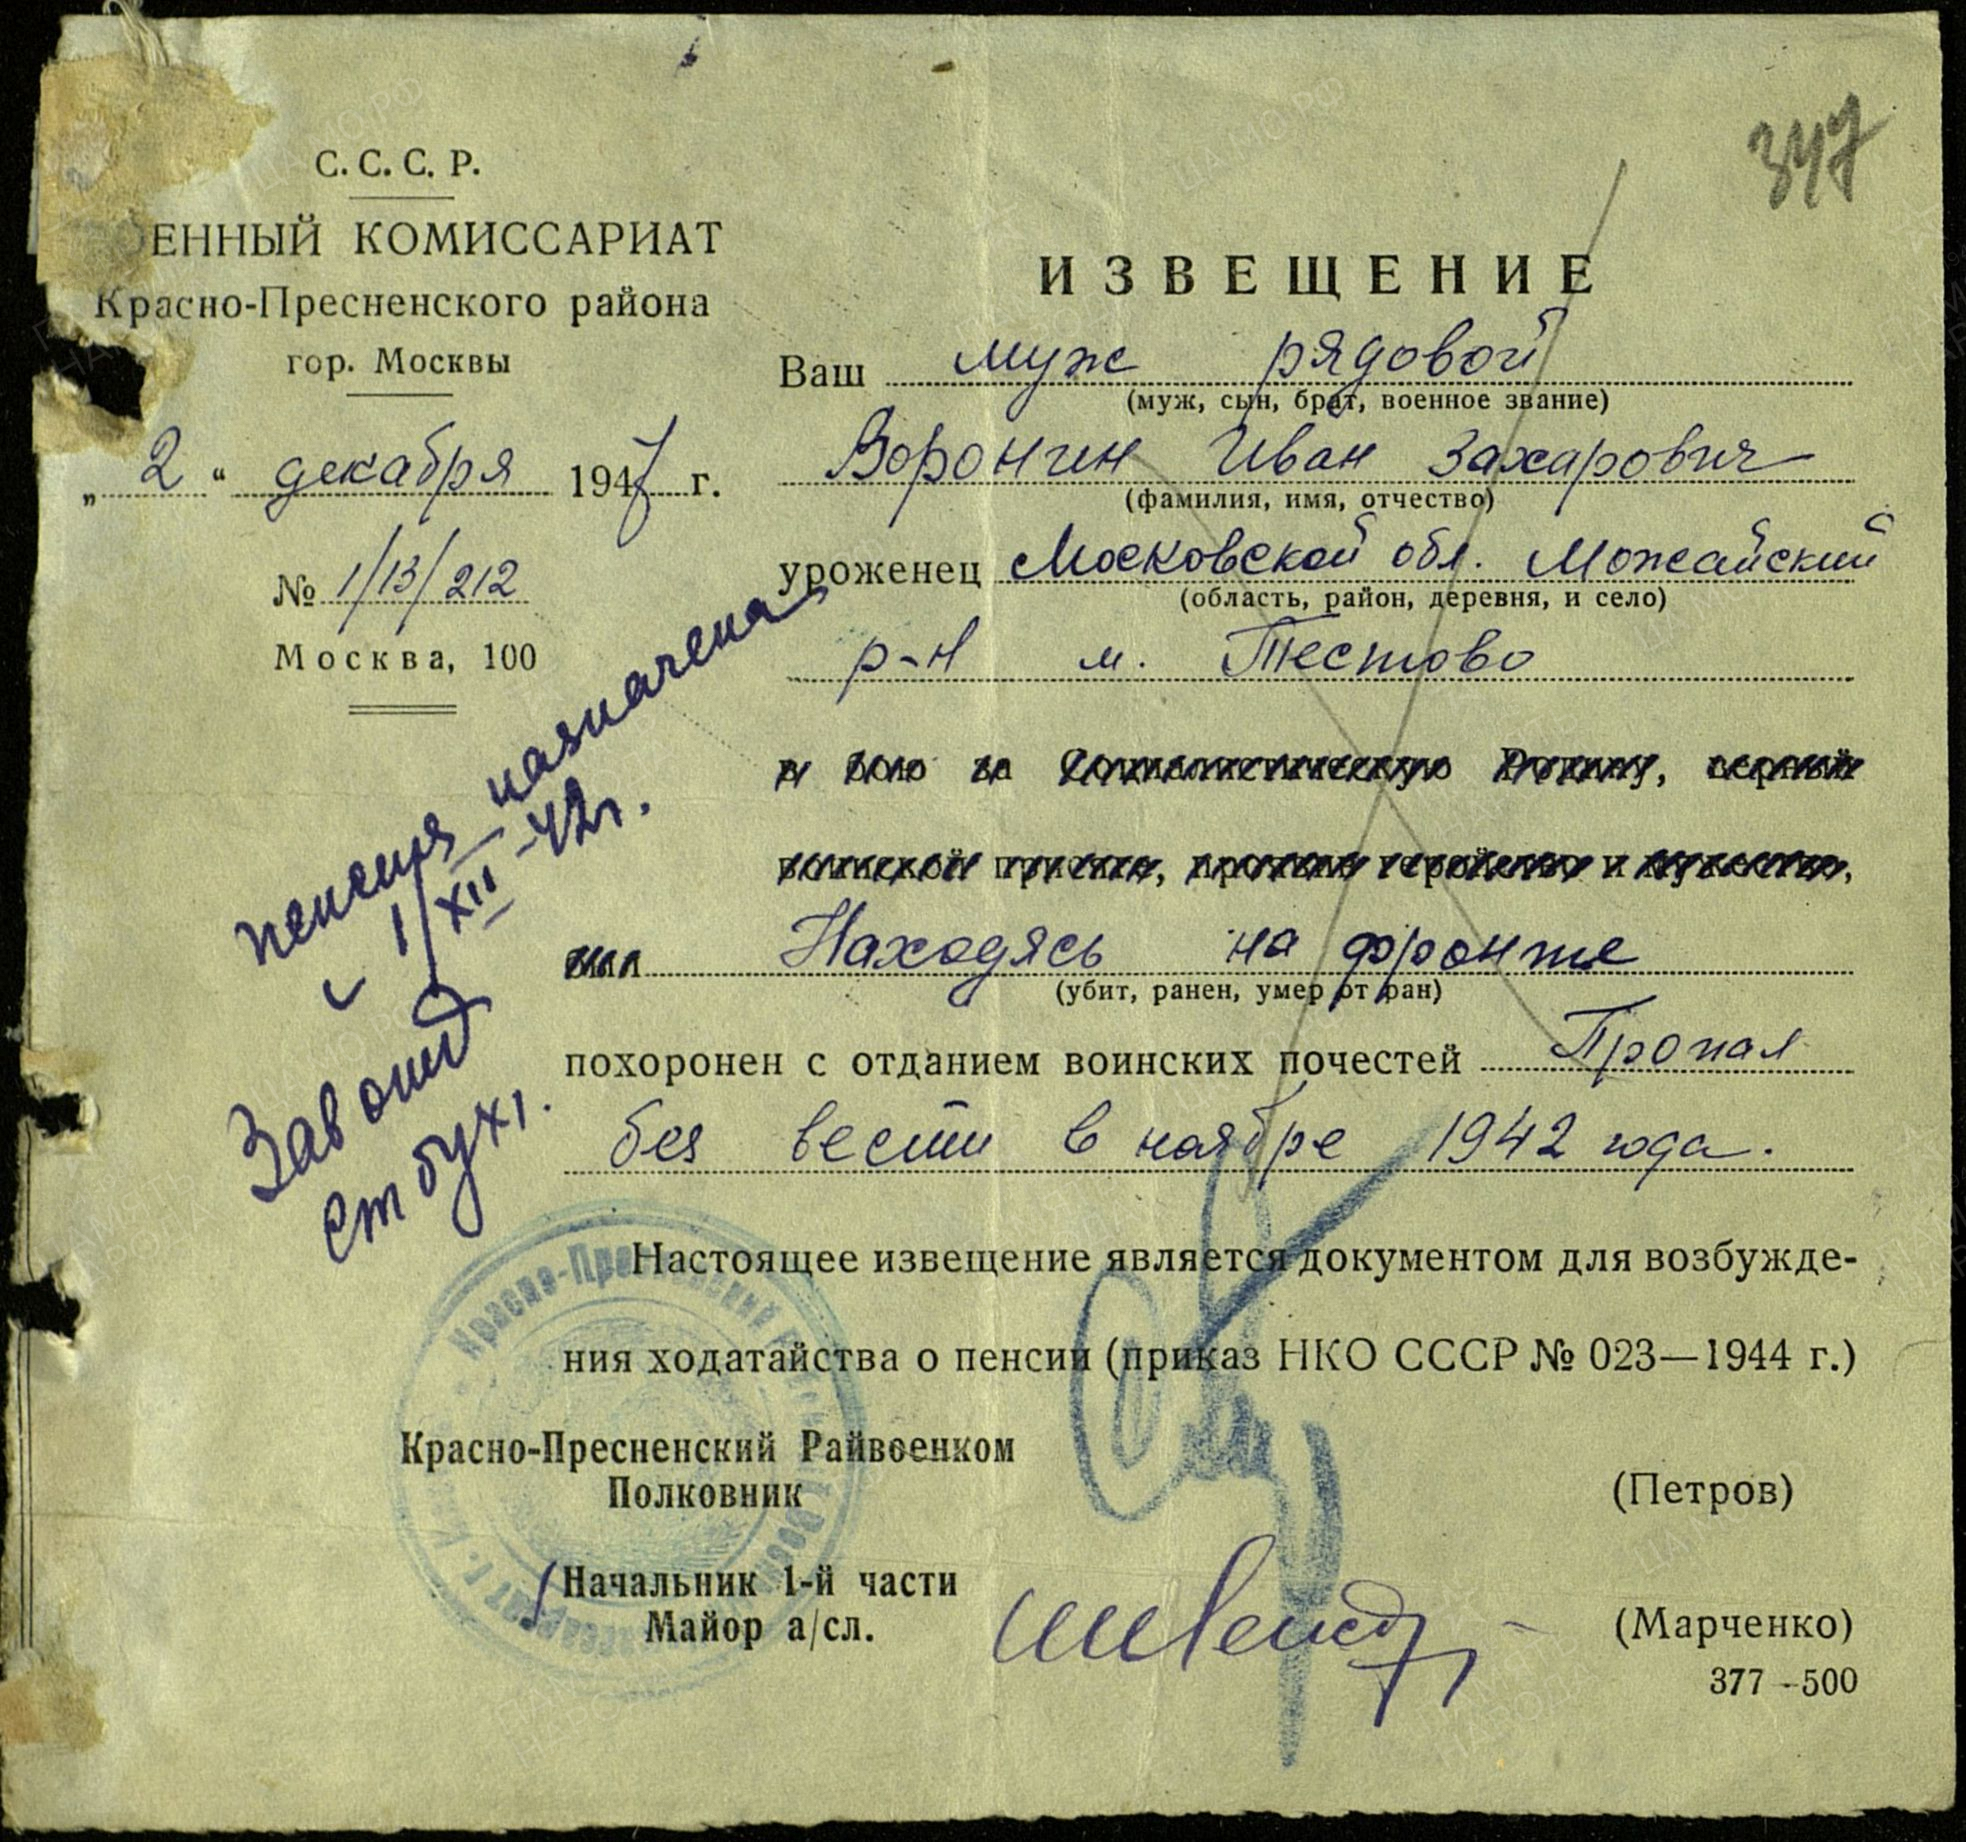 347
С. С. С. Р.
ЕННЫЙ КОМИССАРИАТ
Красно-Пресненского района
гор. Москвы
„ 2 " декабря 1947 г.
№ 1/13/212
Москва, 100
ИЗВЕЩЕНИЕ
Ваш муж рядовой
(муж, сын, брат, военное звание)
Воронин Иван Захарович
(фамилия, имя, отчество)
уроженец Московской обл. Можайский
(область, район, деревня, и село)
р-н м. Тестово
в бою за Социалистическую Родину, верный
воинской присяге, проявив геройство и мужество,
был Находясь на фронте
(убит, ранен, умер от ран)
похоронен с отданием воинских почестей Пропал
без вести в ноябре 1942 года.
пенсия назначена
с 1/XII-42г.
Зав
ст бух
Настоящее извещение является документом для возбужде-
ния ходатайства о пенсии (приказ НКО СССР № 023—1944 г.)
Красно-Пресненский Райвоенком
Полковник
(Петров)
Начальник 1-й части
Майор а/сл.
(Марченко)
377 - 500